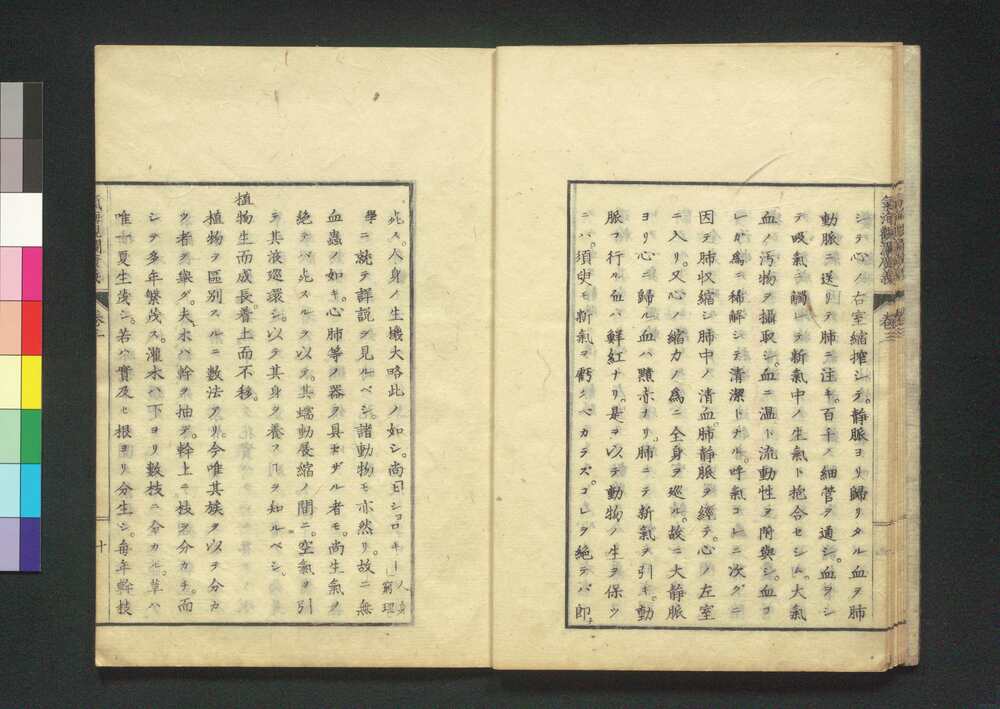 シテ心ノ右室縮搾シテ。静脈ヨリ歸リタル血ヲ肺
動脈ニ送リテ肺ニ注キ百千ノ細管ヲ通シ。血ヲシ
テ吸氣ニ觸レテ新氣中ノ生氣ト抱合セシム。大氣
血ノ汚物ヲ攝取シ。血ニ温ト流動性ヲ附與シ。血コ
レガ為ニ稀解シテ清潔トナル。呼氣コレニ次グニ
因テ肺收縮シ肺中ノ清血。肺静脈ヲ經テ。心ノ左室
ニ入リ。又心ノ縮力ノ為ニ全身ヲ巡ル。故ニ大静脈
ヨリ心ニ歸ル血ハ黯赤ナリ。肺ニテ新氣ヲ引キ。動
脈ヲ行ル血ハ鮮紅ナリ。是ヲ以テ動物ノ生ヲ保ツ
ニハ。須臾モ新氣ヲ虧クベカラズ。コレヲ絶テバ即チ
死ス。人身ノ生機大略此ノ如シ。尚ヒショロギー人身窮理
學ニ就テ譯説ヲ見ルベシ。諸動物モ亦然リ。故ニ無
血蟲ノ如キ。心肺等ノ器ヲ具セザル者モ。尚生氣ヲ
絶テバ死スルヲ以テ。其蠕動展縮ノ間ニ。空氣ヲ引
テ其液巡環シ。以テ其身ヲ養フヿヲ知ルベシ。
植物生而成長。着土而不移。
植物ヲ區別スルニ數法アリ。今唯其族ヲ以ヲ分カ
ツ者ヲ舉グ。夫木ハ幹ヲ抽デ。幹上ニ枝ヲ分カチ。而
シテ多年繁茂ス。灌木ハ下ヨリ數枝ニ分カル。草ハ
唯一夏生茂シ。若ハ實及ヒ根ヨリ分生シ。毎年幹枝
十